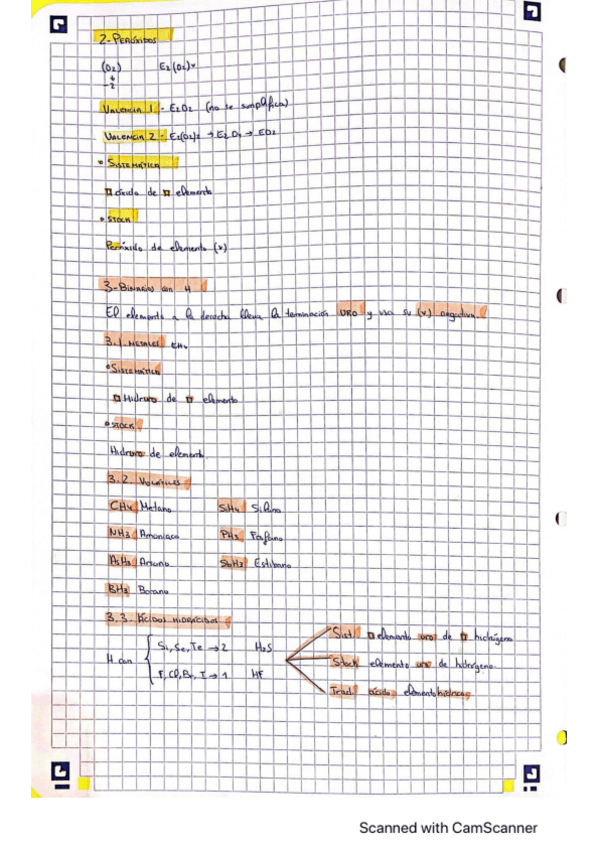 2- PERÓXIDOS
(O2) E2(O2)v
-2
VALENCIA 1 - E2O2 (no se simplifica)
VALENCIA 2 - E2(O2)2 → E2O4 → EO2
• SISTEMÁTICA
□ óxido de □ elemento
• STOCK
Peróxido de elemento (v)
3- BINARIOS con H
El elemento a la derecha lleva la terminación URO y usa su (v) negativa.
3.1. METALES EHv
• SISTEMÁTICA
□ Hidruro de □ elemento
• STOCK
Hidruro de elemento.
3.2. VOLÁTILES
CH4 Metano SiH4 Silano
NH3 Amoniaco PH3 Fosfano
AsH3 Arsano SbH3 Estibano
BH3 Borano
3.3. ÁCIDOS HIDRÁCIDOS
H con
Si, Se, Te → 2 H2S
F, Cl, Br, I → 1 HF
Sist. □ elemento uro de □ hidrógeno
Stock elemento uro de hidrógeno.
Trad. ácido elemento hídrico
Scanned with CamScanner